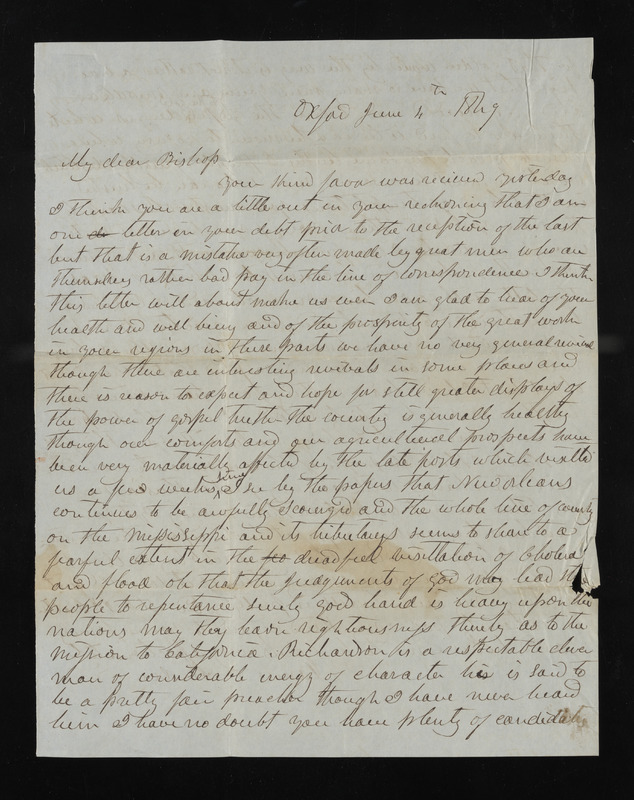 Oxford June 4th 1849
My dear Bishop
your kind favor was recieved yesterday
I think you are a little out in your reckoning that I am
one letter in your debt prior to the reception of the last
but that is a mistake very often made by great men who are
themselves rather bad pay in the line of correspondence I think
this letter will about make us even I am glad to hear of your
health and well being and of the prosperity of the great work
in your regions in these parts we have no very general revival
though there are interesting revivals in some places and
there is reason to expect and hope for still greater displays of
the power of gospel truth the country is generally healthy
though our comforts and our agricultural prospects have
been very materially affected by the late frosts which visited
us a few weeks since I see by the papers that New orleans
continues to be awfully scourged and the whole line of country
on the Mississippi and its tributarys seems to share to a
fearful extent in the dreadful visittation of Cholera
and flood oh that the judgements of god may lead the
people to repentance surely gods hand is heavy upon the
nations may they learn righteousness thereby as to the
mission to California. Richardson is a respectable clever
man of considerable energy of character he is said to
be a pretty fair preacher though I have never heard
him I have no doubt you have plenty of candidates